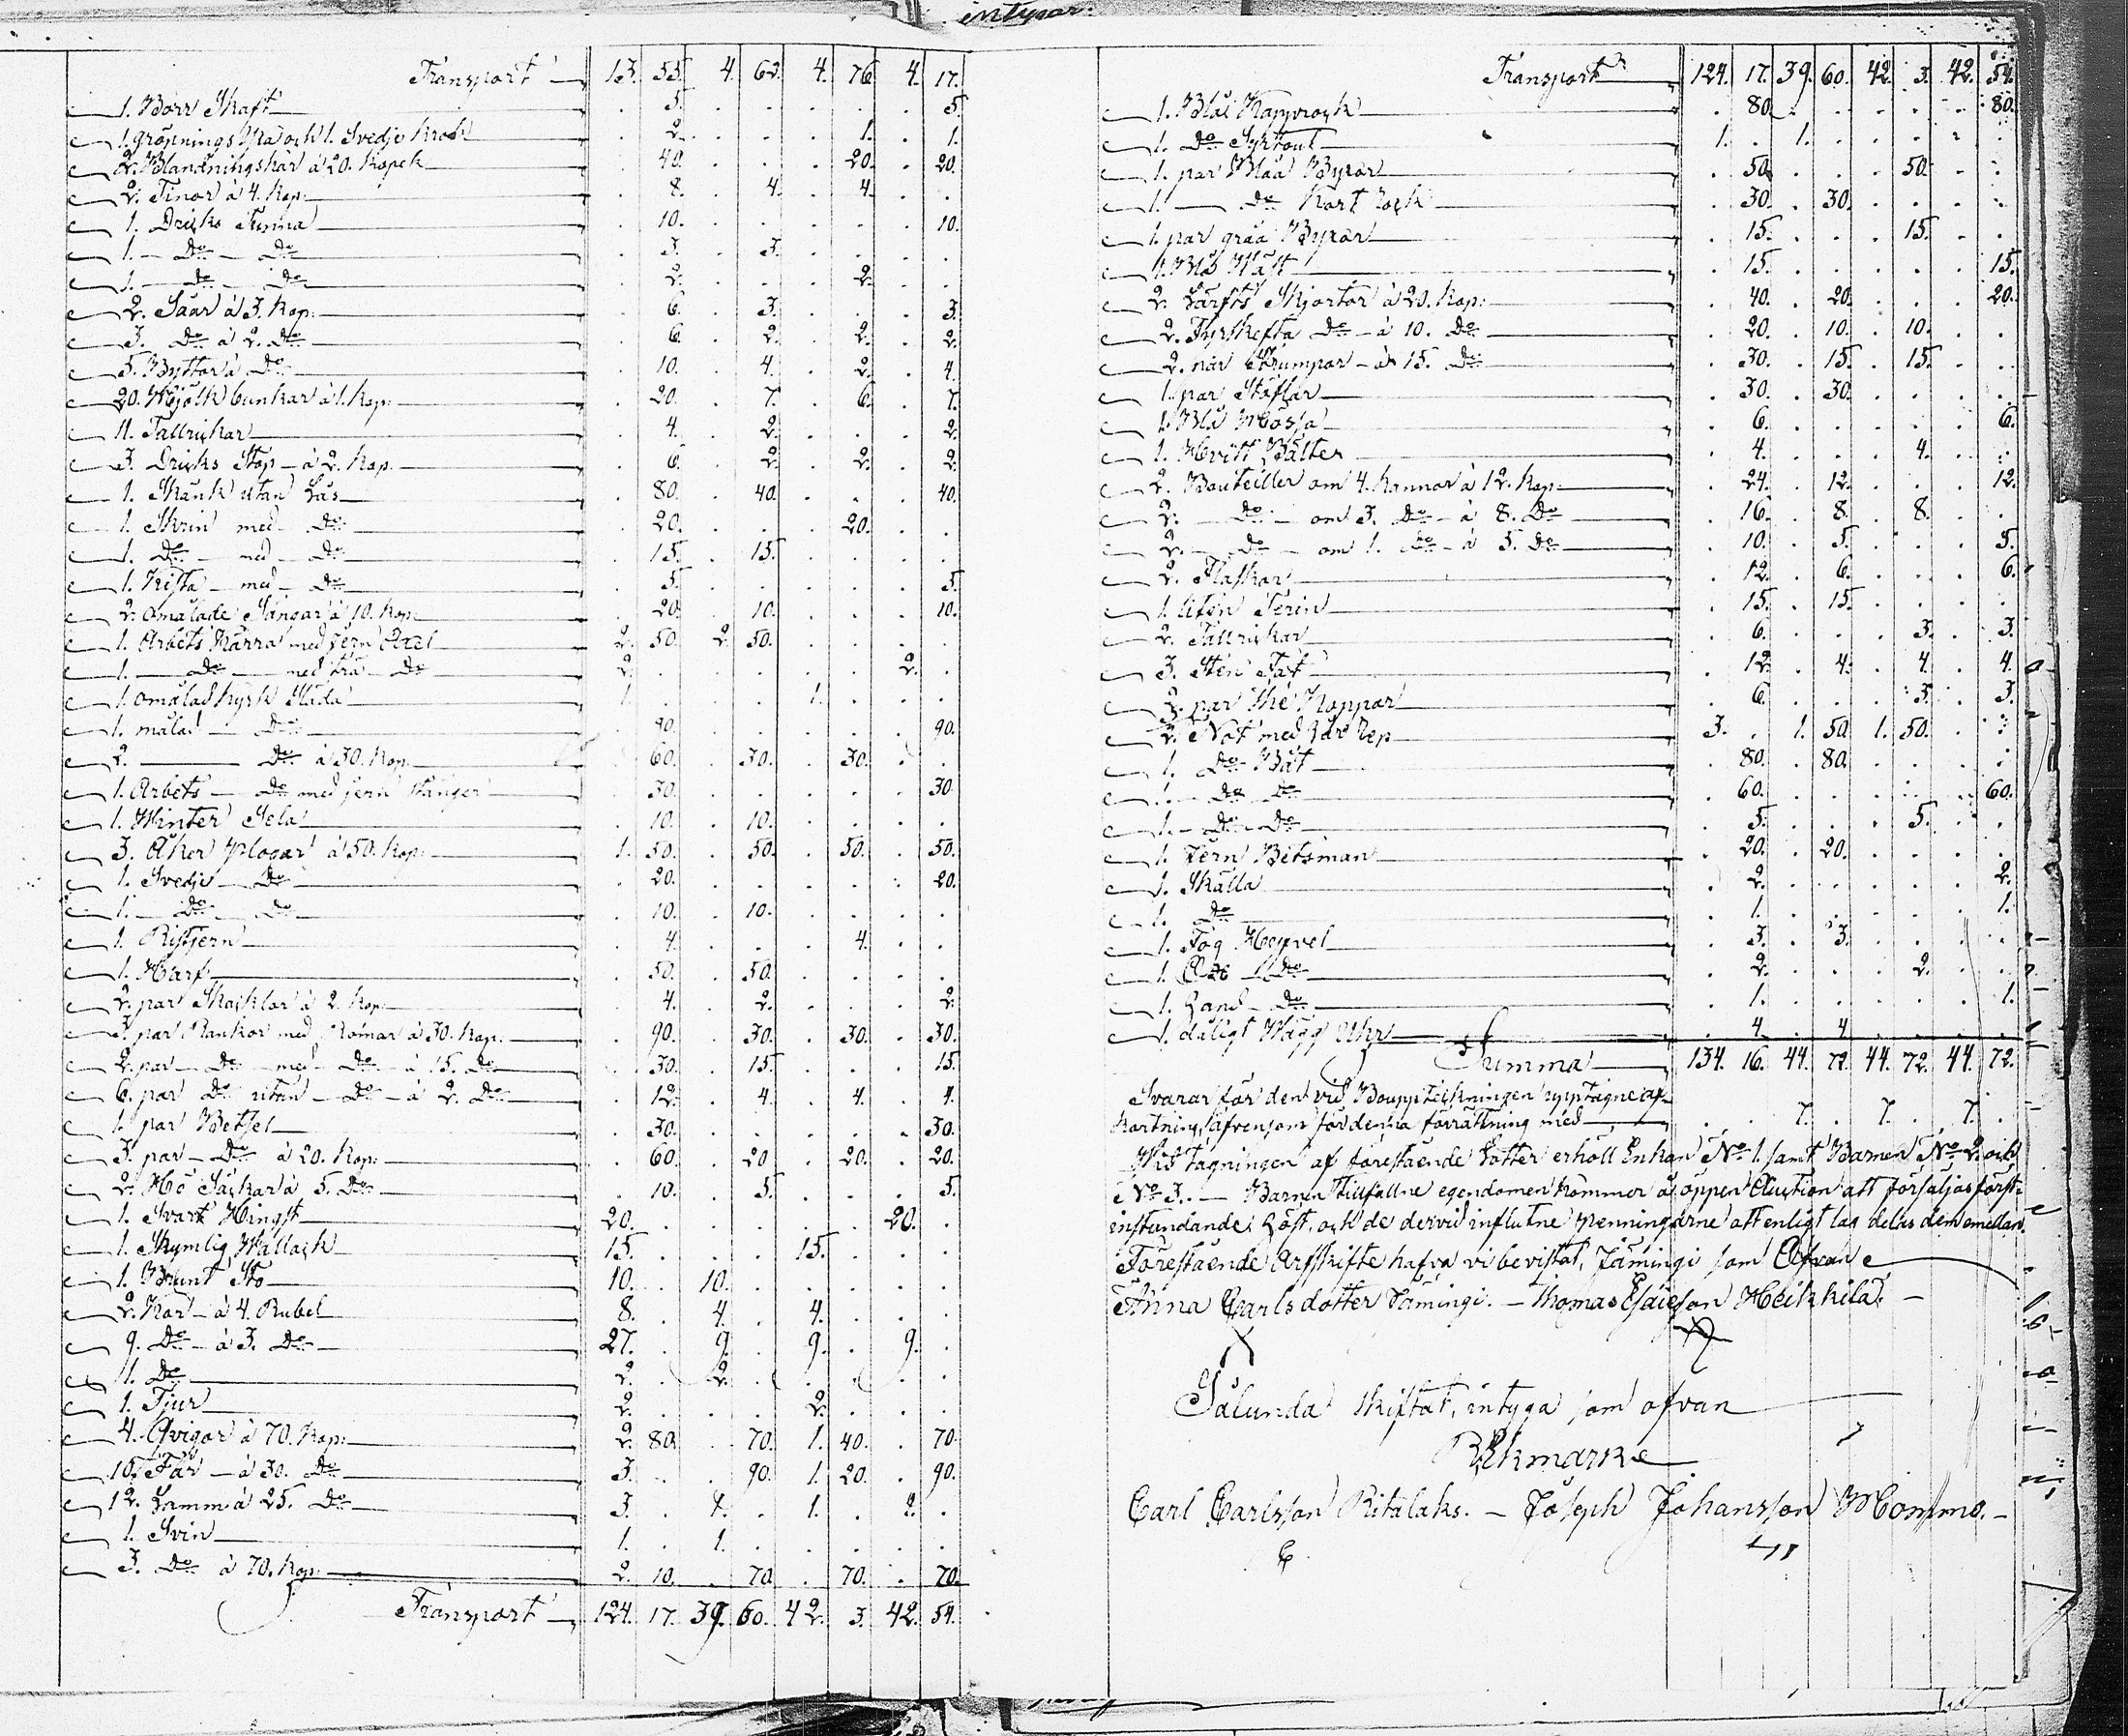 intygar.
Transport 13. 55. 4. 62. 4. 76. 4. 17.
1. Borr Skaft . 5. . . . . . 5.
1. Gröpnings och 1. Svedje Krok . 2. . . . 1. . 1.
2. Blandningskar à 20. Kopek . 40. . . . 20. . 20.
2. Tinor à 4. Kop: . 8. . 4. . 4. . .
1. Dricks Tunna . 10. . . . . . 10.
1. - Do - Do . 3. . 3. . . . .
1. - Do - Do . 2. . . . 2. . .
2. Såar à 3. Kop: . 6. . 3. . . . 3.
3. Do à 2. Do . 6. . 2. . 2. . 2.
5. Byttor à Do . 10. . 4. . 2. . 4.
20. Mjölk bunkar à 1. Kop: . 20. . 7. . 6. . 7.
11. Tallrickar . 4. . 2. . . . 2.
3. Dricks Stop - à 2. Kop. . 6. . 2. . 2. . 2.
1. Skänk utan Lås . 80. . 40. . . . 40.
1. Skrin med Do . 20. . . . 20. . .
1. Do - med - Do . 15. . 15. . . . .
1. Kista - med - Do . 5. . . . . . 5.
2. omålade Sängar à 10. Kop: . 20. . 10. . . . 10.
1. Arbets Kärra med Jern Axel 2. 50. 2. 50. . . . .
1. - Do - med trä - Do 2. . . . . . 2. .
1. omålad kyrk Släda 1. . . . 1. . . .
1. målad - Do . 90. . . . . . 90.
2. - Do à 30. Kop: . 60. . 30. . 30. . .
1. Arbets - Do med jern stänger . 30. . . . . . 30.
1. Winter Sela . 10. . 10. . . . .
3. Åker Plogar à 50. Kop: 1. 50. . 50. . 50. . 50.
1. Svedje - Do . 20. . . . . . 20.
1. - Do - Do . 10. . 10. . . . .
1. Ristjern . 4. . . . 4. . .
1. Harf . 50. . 50. . . . .
2. par Skacklar à 2. Kop: . 4. . 2. . . . 2.
3. par Rankor med Romar à 30. Kop. . 90. . 30. . 30. . 30.
2. par - Do - med - Do - à 15. Do . 30. . 15. . . . 15.
6. par Do utan - Do - à 2. Do . 12. . 4. . 4. . 4.
1. par Betsel . 30. . . . . . 30.
3. par - Do à 20. Kop: . 60. . 20. . 20. . 20.
2. Hö Säckar à 5. Do . 10. . 5. . . . 5.
1. Svart Hingst 20. . . . . . 20. .
1. Skymlig Wallack 15. . . . 15. . . .
1. Brunt Sto 10. . 10. . . . . .
2. Kor - à 4. Rubel 8. . 4. . 4. . . .
9. Do - à 3. Do 27. . 9. . 9. . 9. .
1. Do 2. . 2. . . . . .
1. Tjur 2. . . . 2. . . .
4. Qvigor à 70. Kop: 2. 80. . 70. 1. 40. . 70.
10. Får - à 30. Do 3. . . 90. 1. 20. . 90.
12. Lamm à 25. Do 3. . 1. . 1. . 2. .
1. Svin 1. . 1. . . . . .
3. Do à 70. Kop: 2. 10. . 70. . 70. . 70.
Transport 124. 17. 39. 60. 42. 3. 42. 54.
Transport 124. 17. 39. 60. 42. 3. 42. 54.
1. Blå Kapprock . 80. . . . . . 80.
1. Do Syrtout 1. . 1. . . . . .
1. par Blåa Byxor . 50. . . . 50. . .
1. - Do Kort Rock . 30. . 30. . . . .
1. par gråa Byxor . 15. . . . 15. . .
1. Blå . 15. . . . . . 15.
2. Lärfts Skjortor à 20. Kop: . 40. . 20. . . . 20.
2. Fyrskefta Do - à 10. Do . 20. . 10. . 10. . .
2. par Strumpor - à 15. Do . 30. . 15. . 15. . .
1. par Stöflar . 30. . 30. . . . .
1. Blå Mössa . 6. . . . . . 6.
1. Hvitt Bälter . 4. . . . 4. . .
2. Bouteiller om 4. Kannor à 12. Kop: . 24. . 12. . . . 12.
2. - Do - om 3. Do - à 8. Do . 16. . 8. . 8. . .
2. - Do - om 1. Do - à 5. Do . 10. . 5. . . . 5.
2. Flaskor . 12. . 6. . . . 6.
1. liten Terin . 15. . 15. . . . .
2. Tallrickar . 6. . . . 3. . 3.
3. Sten Fat . 12. . 4. . 4. . 4.
2. par Thé Koppar . 6. . . . 3. . 3.
2. Not med Rep 3. . 1. 50. 1. 50. . .
1. Do Båt . 80. . 80. . . . .
1. - Do Do . 60. . . . . . 60.
1. - Do - Do . 5. . . . 5. . .
1. Jern Betsman . 20. . 20. . . . .
1. Skälla . 2. . . . . . 2.
1. Do . 1. . . . . . 1.
1. Fog Hyfvel . 3. . 3. . . . .
1. Do . 2. . . . 2. . .
1. Land - Do . 1. . . . . . 1.
1. dåligt Wägg Uhr . 4. . 4. . . . .
Summa 134. 16. 44. 72. 44. 72. 44. 72.
Svarar för den vid Bouppteckningen upptagne af-
kortning, äfvensom för denna förrättning med . . 7. . 7. . 7. .
Wid tagningen af förestående Lotter erhöll Enkan No 1. samt Barnen No 2. och
No 3. - Barnen tillfallne egendomen kommer å öppen Auction att försäljas först-
instundande höst, och de dervid influtne penningarne att enligt lag delas dem emellan.
Förestående Arfskifte hafva vi bevistat, Jämingi som Ofvan
Anna Carlsdotter Jämingi. - Thomas Esaiesson Heikkilä. -
Sålunda skiftat, intyga som ofvan
REkmark
Carl Carlsson Ritalaks. - Joseph Johansson Mommo. -